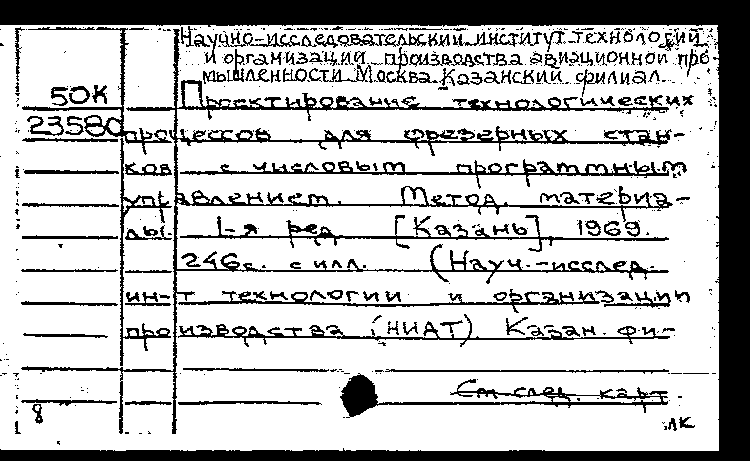 Научно-исследовательский институт технологии
и организации производства авиационной про-
мышленности Москва. Казанский филиал.
50К Проектирование технологических
23580 процессов для фрезерных стан-
ков с числовым программным
управлением. Метод. материа-
лы. 1-я ред. [Казань], 1969.
246с. с илл. (Науч.-исслед.
ин-т технологии и организации
производства (НИАТ). Казан. фи-
См. след. карт.
8 ЛК